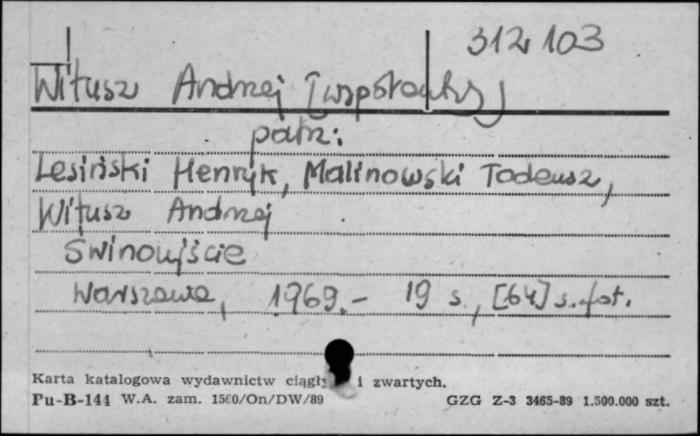 312 103
Witusz Andrzej [współautor]
patrz:
Lesiński Henryk, Malinowski Tadeusz,
Witusz Andrzej
Świnoujście
Warszawa, 1969.- 19 s., [64] s. fot.
Karta katalogowa wydawnictw ciągły i zwartych.
Pu-B-144 W.A. zam. 1560/On/DW/89 GZG Z-3 3465-89 1.500.000 szt.